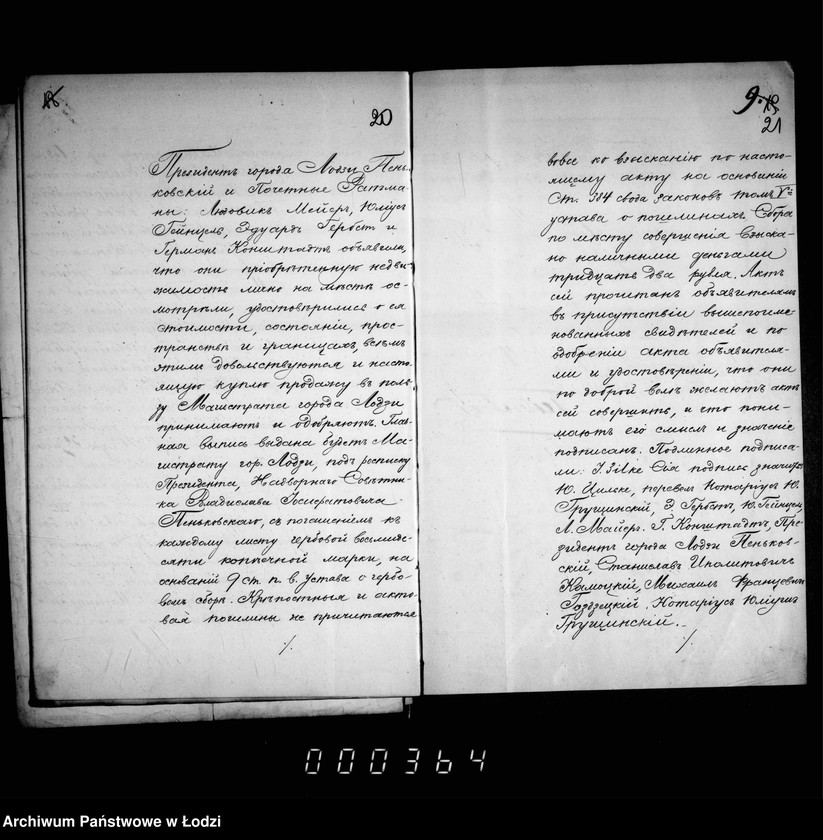 18
20
Президентъ города Лодзи Пень-
ковскій и Почетные Ратма-
ны: Людовикъ Мейеръ, Юліусъ
Гейнцель, Эдуардъ Гербстъ и
Германъ Конштадтъ объявили,
что они пріобрѣтенную недви-
жимость лично на мѣстѣ ос-
мотрѣли, удостовѣрились о ея
стоимости, состояніи, прос-
транствѣ и границахъ, всѣмъ
этимъ довольствуются и насто-
ящую куплю продажу въ поль-
зу Магистрата города Лодзи
принимаютъ и одобряютъ. Глав-
ная выпись выдана будетъ Ма-
гистрату гор. Лодзи, подъ росписку
Президента, Надворнаго Совѣтни-
ка Владислава
Пеньковскаго, съ погашеніемъ къ
каждому листу гербовой восьмиде-
сяти копѣечной марки, на
основаніи 9 ст. п. в. Устава о гербо-
вомъ сборѣ. Крѣпостныя и акто-
выя пошлины не причитаются
./.
9.
21
вовсе ко взысканію по насто-
ящему акту на основаніи
Ст. 384 свода законовъ томъ Vй
устава о пошлинахъ. Сбора
по мѣсту совершенія взыска-
но наличными деньгами
тридцать два рубля. Актъ
сей прочитанъ объявителямъ
въ присутствіи вышепоиме-
нованныхъ свидѣтелей и по
одобреніи акта объявителя-
ми и удостовѣреніи, что они
по доброй волѣ желаютъ актъ
сей совершить, и что пони-
маютъ его смыслъ и значеніе
подписанъ. Подлинное подписа-
ли: J. Zilke Сія подпись значитъ
Ю. Цильке, перевелъ Нотаріусъ Ю.
Грущинскій, Э. Гербстъ, Ю. Гейнцель,
Л. Майеръ. Г. Конштадтъ, Пре-
зидентъ города Лодзи Пеньков-
скій, Станиславъ Иполитовичъ
Камоцкій, Михаилъ Францовичъ
Нотаріусъ Юліушъ
Грущинскій..
./.
000364
Archiwum Państwowe w Łodzi